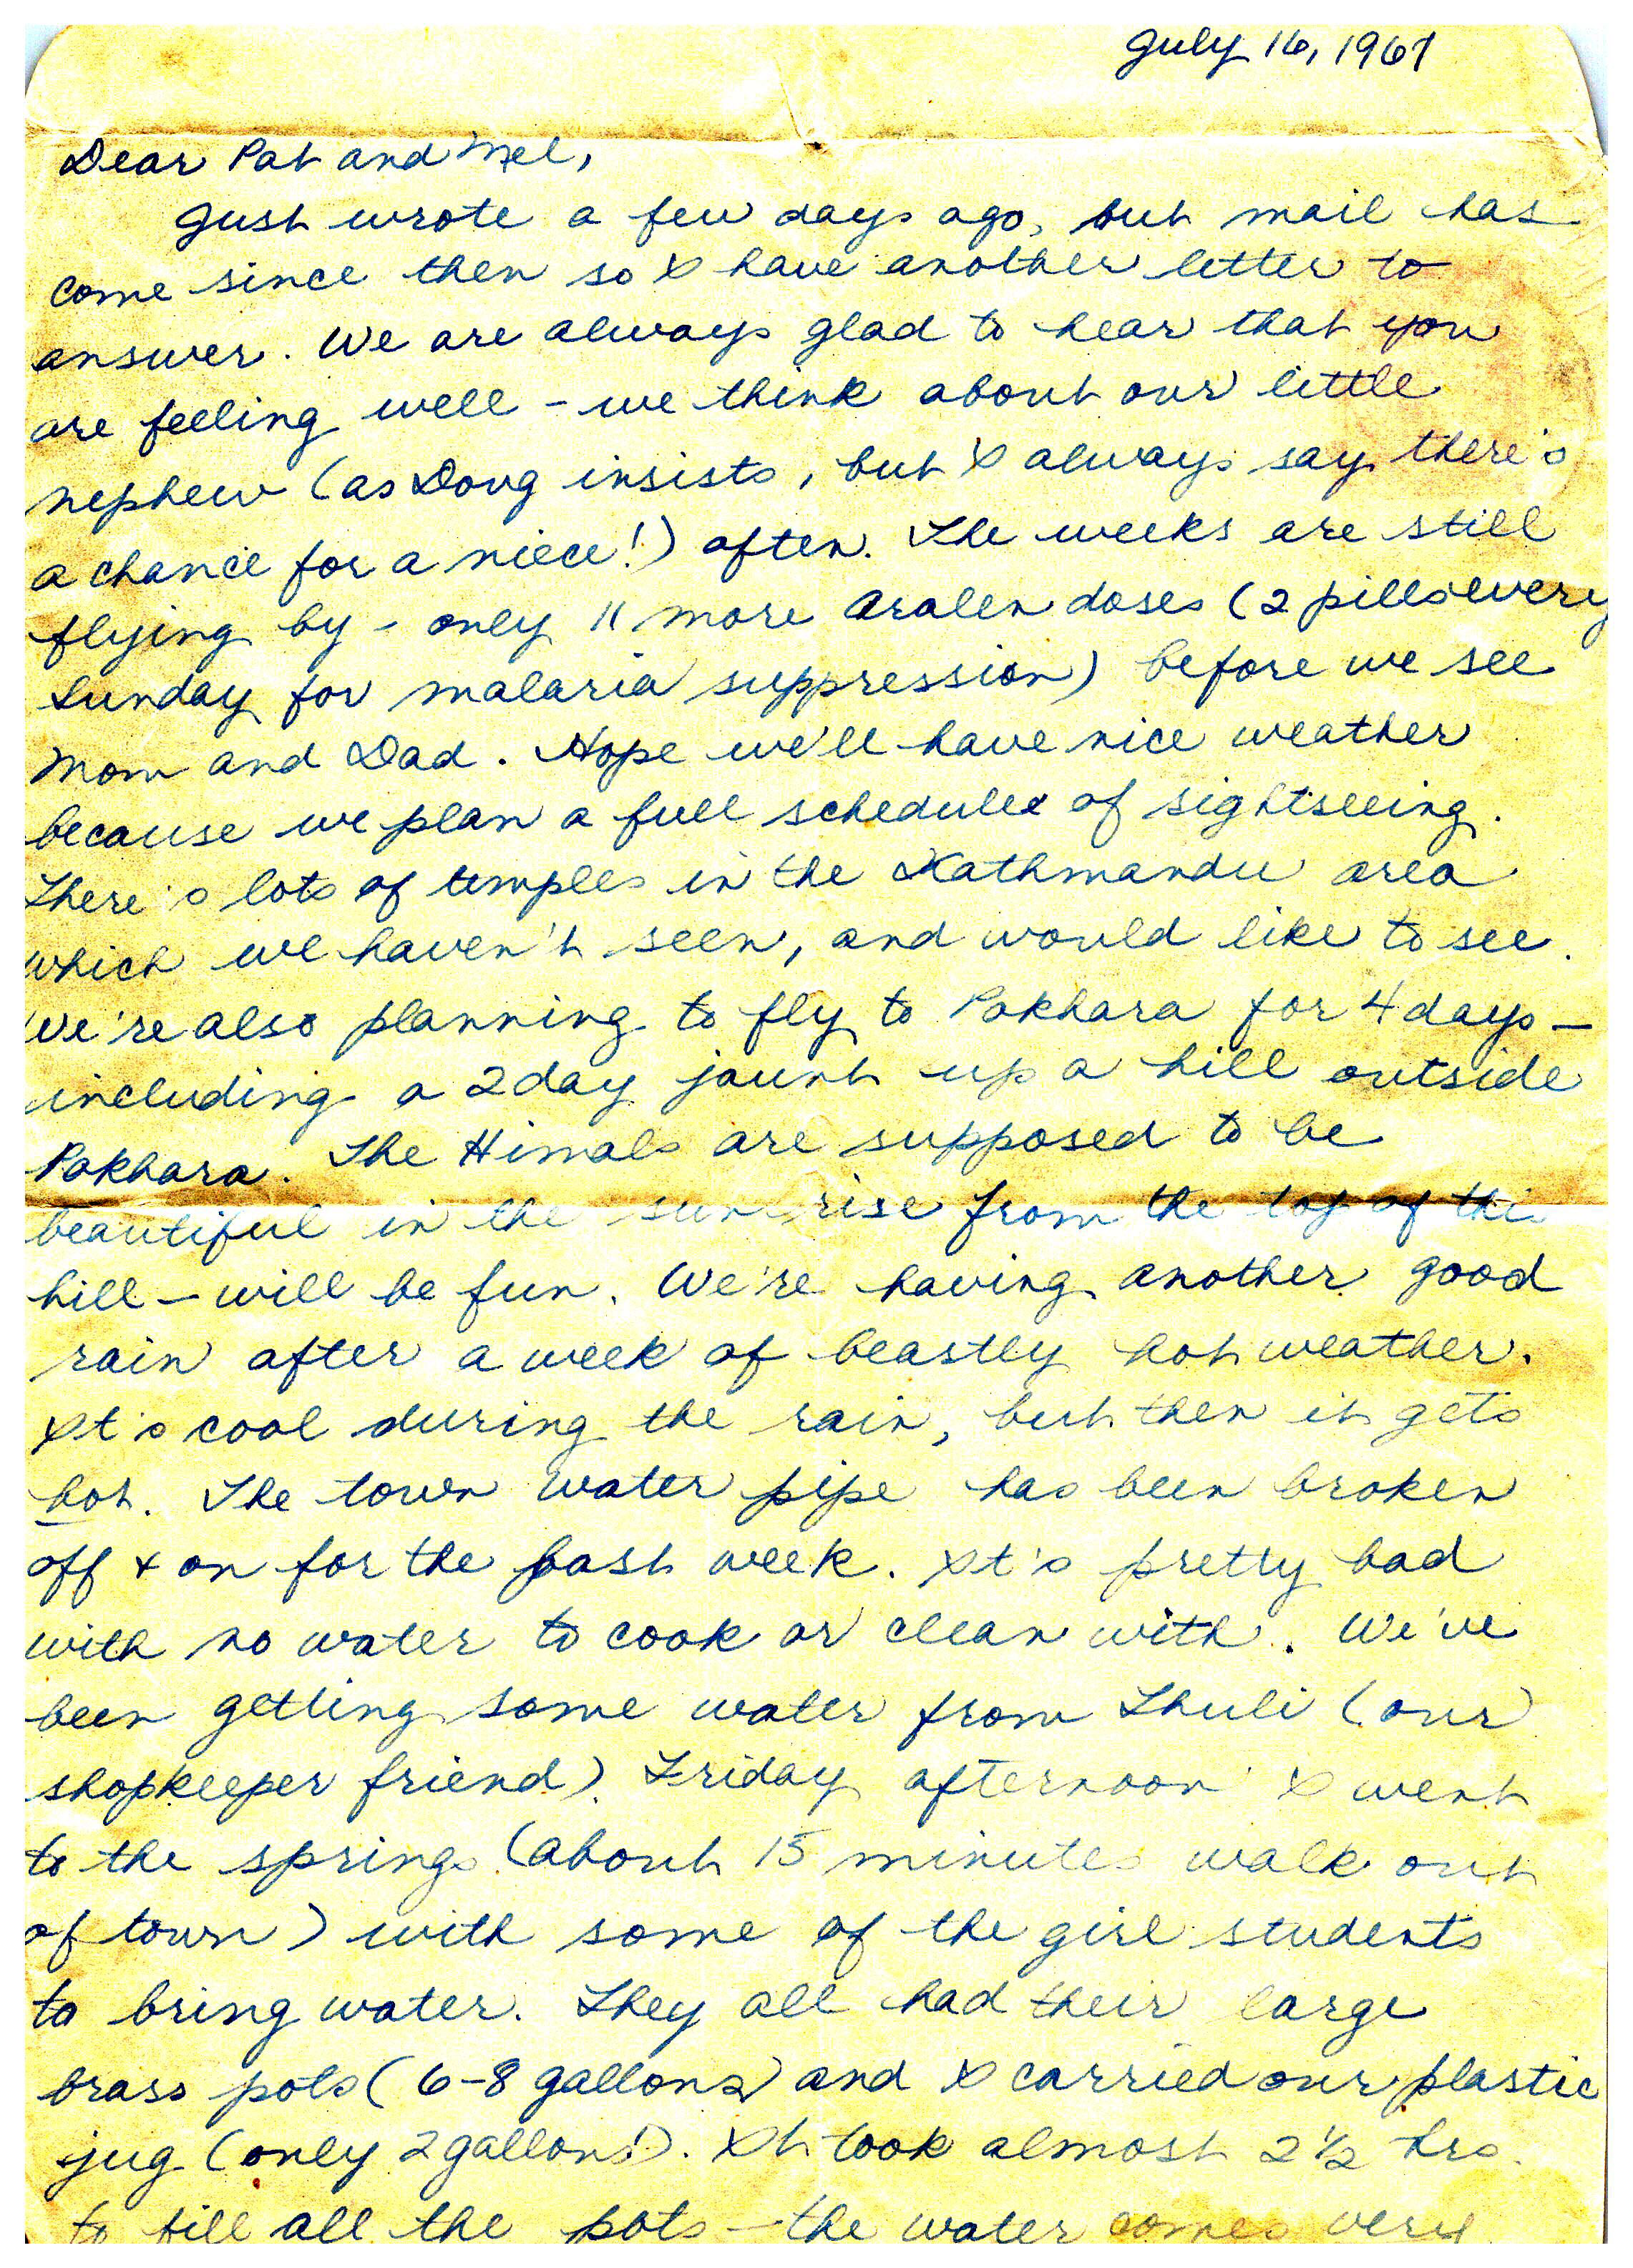 July 16, 1967
Dear Pat and Mel,
Just wrote a few days ago, but mail has
come since then so I have another letter to
answer. We are always glad to hear that you
are feeling well – we think about our little
nephew (as Doug insists, but I always say there's
a chance for a niece!) often. The weeks are still
flying by – only 11 more Aralen doses (2 pills every
Sunday for malaria suppression) before we see
Mom and Dad. Hope we'll have nice weather
because we plan a full schedule of sightseeing.
There's lots of temples in the Kathmandu area
which we haven't seen, and would like to see.
We're also planning to fly to Pokhara for 4 days –
including a 2 day jaunt up a hill outside
Pokhara. The Himals are supposed to be
beautiful in the sunrise from the top of this
hill – will be fun. We're having another good
rain after a week of beastly hot weather.
It's cool during the rain, but then it gets
hot. The town water pipe has been broken
off + on for the past week. It's pretty bad
with no water to cook or clean with. We've
been getting some water from Thuli (our
shopkeeper friend). Friday afternoon I went
to the springs (about 15 minutes walk out
of town) with some of the girl students
to bring water. They all had their large
brass pots (6-8 gallons) and I carried our plastic
jug (only 2 gallons!). It took almost 2 1/2 hrs.
to fill all the pots – the water comes very